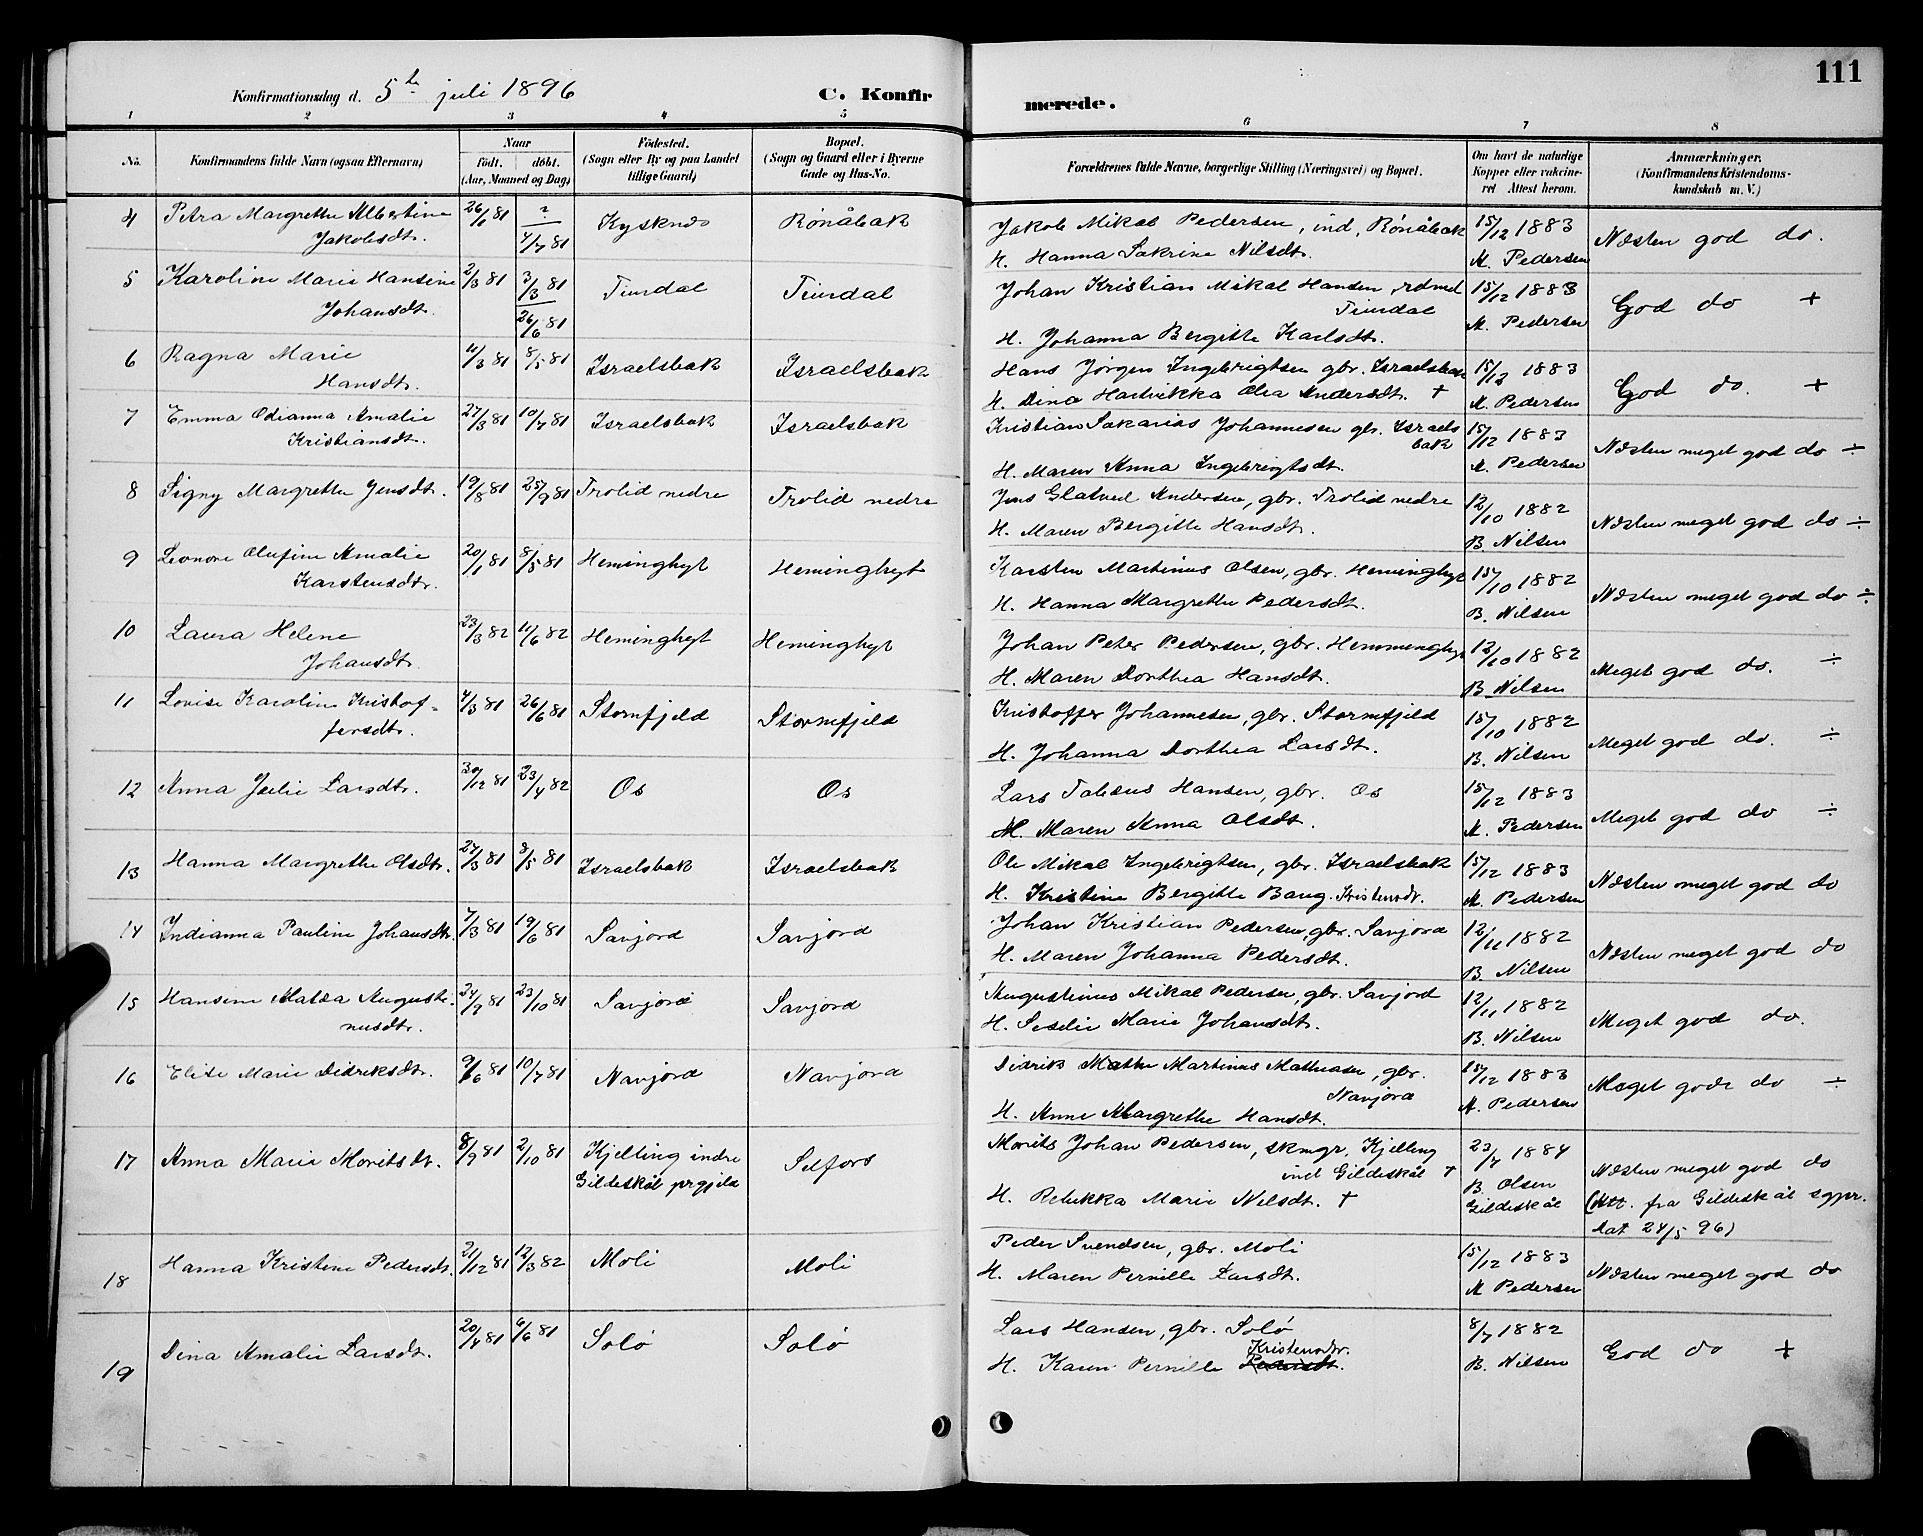 Konfirmationsdag d. 5te juli 1896
C. Konfirmerede.
111
1 2 3 4 5 6 7 8
No. Konfirmandens fulde Navn (ogsaa Efternavn) Naar födt. döbt. (Aar, Maaned og Dag) Födested. (Sogn eller By og paa Landet tillige Gaard) Bopæl. (Sogn og Gaard eller i Byerne Gade og Hus-No. Forældrenes fulde Navne, borgerlige Stilling (Næringsvei) og Bopæl. Om havt de naturlige Kopper eller vakcineret Attest herom. Anmærkninger. (Konfirmandens Kristendomskundskab m. V.)
4 Petra Margrethe Albertine Jakobsdt. 26/6 81 ? 4/7 81 Rønåbak Jakob Mikal Pedersen, ind, Rønåbak 15/12 1883 Næsten god do.
H. Hanna Sakrine Nilsdt. M. Pedersen
5 Karoline Marie Hansine Johansdt. 2/3 81 3/3 81 26/6 81 Tiurdal Tiurdal Johan Kristian Mikal Hansen, rdmd Tiurdal 15/12 1883 God do +
H. Johanna Bergitte Karlsdt. M. Pedersen
6 Ragna Marie Hansdt. 11/3 81 8/5 81 Israelsbak Israelsbak Hans Jørgen Ingebrigtsen gbr. Israelsbak 15/12 1883 God do. +
H. Dina Hartvikka Olea Andersdt. + M. Pedersen
7 Emma Odianna Amalie Kristiansdt. 27/3 81 10/7 81 Israelsbak Israelsbak Kristian Sakarias Johannesen gbr. Israelsbak 15/12 1883 Næsten meget god do ÷
H. Maren Anna Ingebrigtsdt. M. Pedersen
8 Signy Margrethe Jensdt. 19/8 81 25/9 81 Trolid nedre Trolid nedre Jens Glatved Andersen, gbr. Trolid nedre 12/10 1882 Næsten meget god do ÷
H. Maren Bergitte Hansdt. B. Nilsen
9 Leonore Olufine Amalie Karstensdtr. 20/1 81 8/5 81 Heminghyt Heminghyt Karsten Martinus Olsen, gbr. Heminghyt 15/10 1882 Næsten meget god do ÷
H. Hanna Margrethe Pedersdt. B. Nilsen
10 Laura Helene Johansdt. 23/3 82 11/6 82 Heminghyt Heminghyt Johan Peter Pedersen, gbr. Hemmenghyt 12/10 1882 Meget god do. ÷
H. Maren Dorthea Hansdt. B. Nilsen
11 Lovise Karoline Kristoffersdtr. 4/3 81 26/6 81 Stormfjeld Stormfjeld Kristoffer Johannesen, gbr. Stormfjeld 15/10 1882 Meget god do. ÷
H. Johanna Dorthea Larsdt. B. Nilsen
12 Anna Julie Larsdtr. 30/12 81 23/4 82 Os Os Lars Tobæus Hansen, gbr. Os 15/12 1883 Meget god do ÷
H. Maren Anna Olsdt. M. Pedersen
13 Hanna Margrethe Olsdtr. 27/3 81 8/5 81 Israelsbak Israelsbak Ole Mikal Ingebrigtsen, gbr. Israelsbak 15/12 1883 Næsten meget god do
H. Kristine Bergitte Bang. Kristensdr. M. Pedersen
14 Indianna Pauline Johansdtr. 7/3 81 19/6 81 Savjord Savjord Johan Kristian Pedersen, gbr. Savjord 12/11 1882 Næsten meget god do
H. Maren Johanna Pedersdt. B. Nilsen
15 Hansine Matea Augustinusdtr. 24/9 81 23/10 81 Savjord Savjord Augustinus Mikal Pedersen, gbr. Savjord 12/11 1882 Meget god do.
H. Seselie Marie Johansdt. B. Nilsen
16 Elise Marie Didriksdtr. 9/6 81 10/7 81 Navjord Navjord Didrik Mathu Martinus Mathiasen, gbr. Navjord 15/12 1883 Meget gode do ÷
H. Anne Margrethe Hansdt. M. Pedersen
17 Anna Marie Moritsdr. 8/9 81 2/10 81 Kjelling indre Gildeskål prgjeld Selfors Morits Johan Pedersen, skmgr, Kjelling ind Gildeskål + 23/7 1884 Næsten meget god do
H. Rebekka Marie Nilsdt. + B. Olsen Gildeskål (Att. fra Gildeskål sgpr. dat 24/5 96)
18 Hanna Kristine Pedersdt. 21/12 81 12/3 82 Moli Moli Peder Svendsen, gbr. Moli 15/12 1883 Næsten meget god do
H. Maren Pernille Larsdt. M Pedersen
19 Dina Amalie Larsdt. 20/4 81 6/6 81 Solø Solø Lars Hansen, gbr. Solø 8/7 1882 God do +
H. Karen Pernille Kristensdr. B. Nilsen